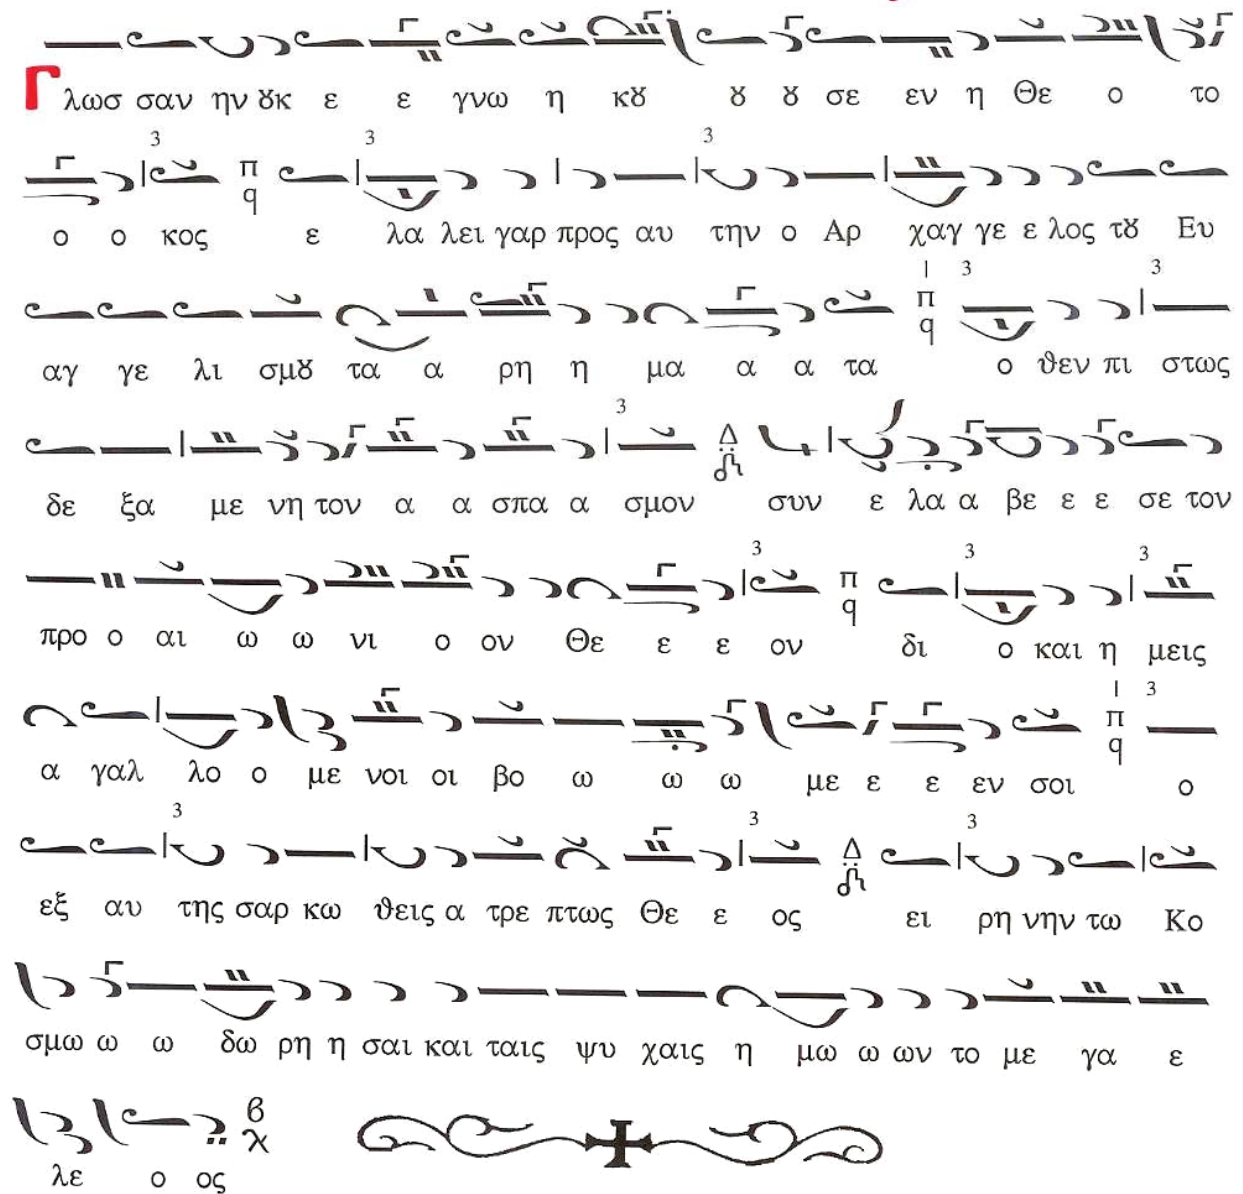 Γλωσ σαν ην ȣκ ε ε γνω η κȣ ȣ ȣ σε εν η Θε ο το
ο ο κος ε λα λει γαρ προς αυ την ο Αρ χαγ γε ε λος τȣ Ευ
αγ γε λι σμȣ τα α ρη η μα α α τα ο ϑεν πι στως
δε ξα με νη τον α α σπα α σμον συν ε λα α βε ε ε σε τον
προ ο αι ω ω νι ο ον Θε ε ε ον δι ο και η μεις
α γαλ λο ο με νοι οι βο ω ω ω με ε ε εν σοι ο
εξ αυ της σαρ κω ϑεις α τρε πτως Θε ε ος ει ρη νην τω Κο
σμω ω ω δω ρη η σαι και ταις ψυ χαις η μω ω ων το με γα ε
λε ο ος